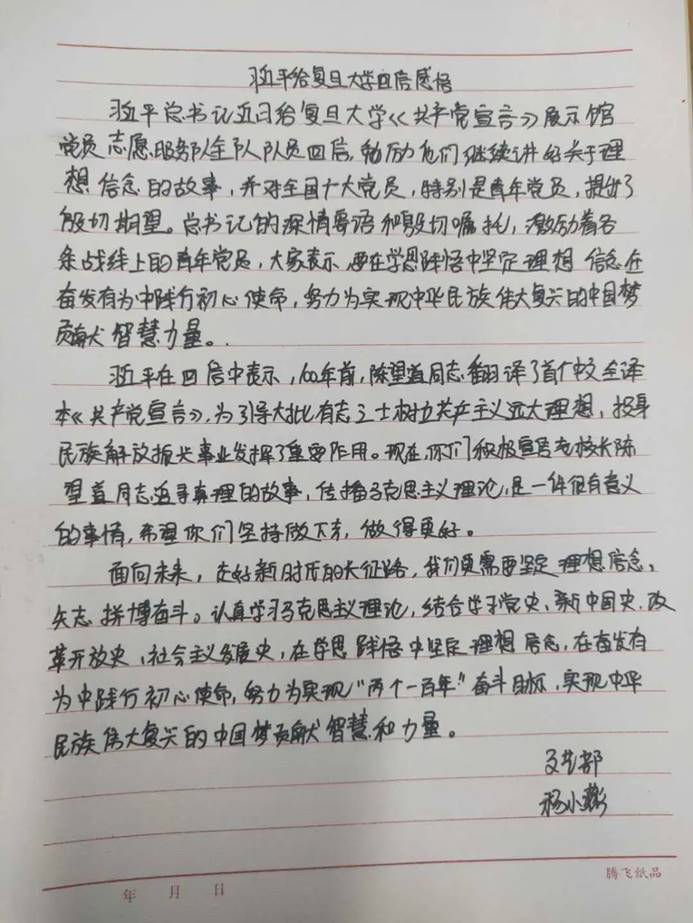 习近平给复旦大学回信感悟
习近平总书记近日给复旦大学《共产党宣言》展示馆
党员志愿服务队全队队员回信,勉励他们继续讲好关于理
想信念的故事,并对全国广大党员,特别是青年党员,提出了
殷切期望。总书记的深情寄语和殷切嘱托,激励着各
条战线上的青年党员,大家表示要在学思践悟中坚定理想信念在
奋发有为中践行初心使命,努力为实现中华民族伟大复兴的中国梦
贡献智慧力量。
习近平在回信中表示,100年前,陈望道同志翻译了首个中文全译
本《共产党宣言》,为引导大批有志之士树立共产主义远大理想,投身
民族解放振兴事业发挥了重要作用。现在,你们积极宣传老校长陈
望道同志追寻真理的故事,传播马克思主义理论,是一件很有意义
的事情,希望你们坚持做下去,做得更好。
面向未来,走好新时代的长征路,我们更需要坚定理想信念,
矢志拼博奋斗。认真学习马克思主义理论,结合学习党史、新中国史、改
革开放史、社会主义发展史,在学思践悟中坚定理想信念,在奋发有
为中践行初心使命,努力为实现“两个一百年”奋斗目标,实现中华
民族伟大复兴的中国梦贡献智慧和力量。
文艺部
杨小彬
年 月 日
腾飞纸品